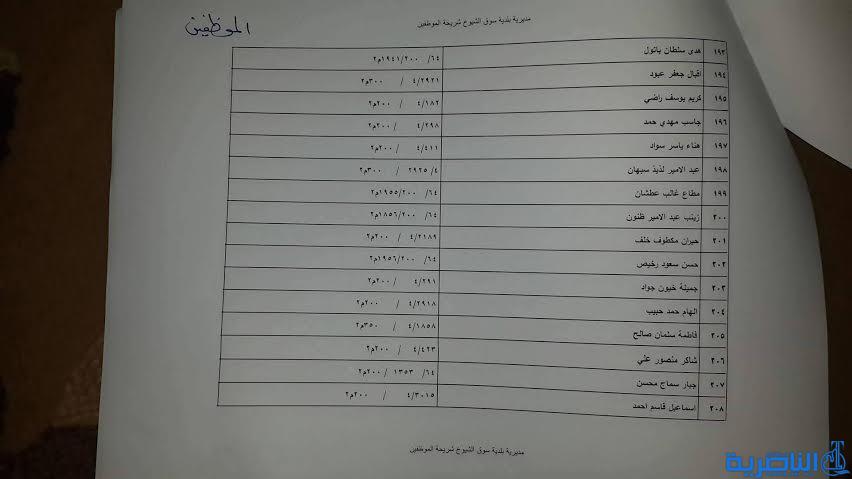 الموظفين
مديرية بلدية سوق الشيوخ شريحة الموظفين
١٩٣ هدى سلطان باتول ٦٤/ ١٩٤١/٢٠٠م٢
١٩٤ اقبال جعفر عبود ٤/٢٩٢١ / ٣٠٠م٢
١٩٥ كريم يوسف راضي ٤/١٨٢ / ٢٠٠م٢
١٩٦ جاسب مهدي حمد ٤/٢٩٨ / ٢٠٠م٢
١٩٧ هناء ياسر سواد ٤/٤١١ / ٢٠٠م٢
١٩٨ عبد الامير لذيذ سبهان ٤/ ٢٩٢٥ / ٣٠٠م٢
١٩٩ مطاع غالب عطشان ٦٤/ ١٩٥٥/٢٠٠م٢
٢٠٠ زينب عبد الامير ظنون ٦٤/ ١٨٥٦/٢٠٠م٢
٢٠١ حيران مكطوف خلف ٤/٢١٨٩ / ٢٠٠م٢
٢٠٢ حسن سعود رخيص ٦٤/ ١٩٥٦/٢٠٠م٢
٢٠٣ جميلة خيون جواد ٤/٢٩١ / ٢٠٠م٢
٢٠٤ الهام حمد حبيب ٤/٢٩١٨ / ٢٠٠م٢
٢٠٥ فاطمة سلمان صالح ٤/١٨٥٨ / ٣٥٠م٢
٢٠٦ شاكر منصور علي ٤/٤٢٣ / ٢٠٠م٢
٢٠٧ جبار سماج محسن ٦٤/ ١٣٥٣ / ٢٠٠م٢
٢٠٨ اسماعيل قاسم احمد ٤/٣٠١٥ / ٢٠٠م٢
مديرية بلدية سوق الشيوخ شريحة الموظفين
الناصرية